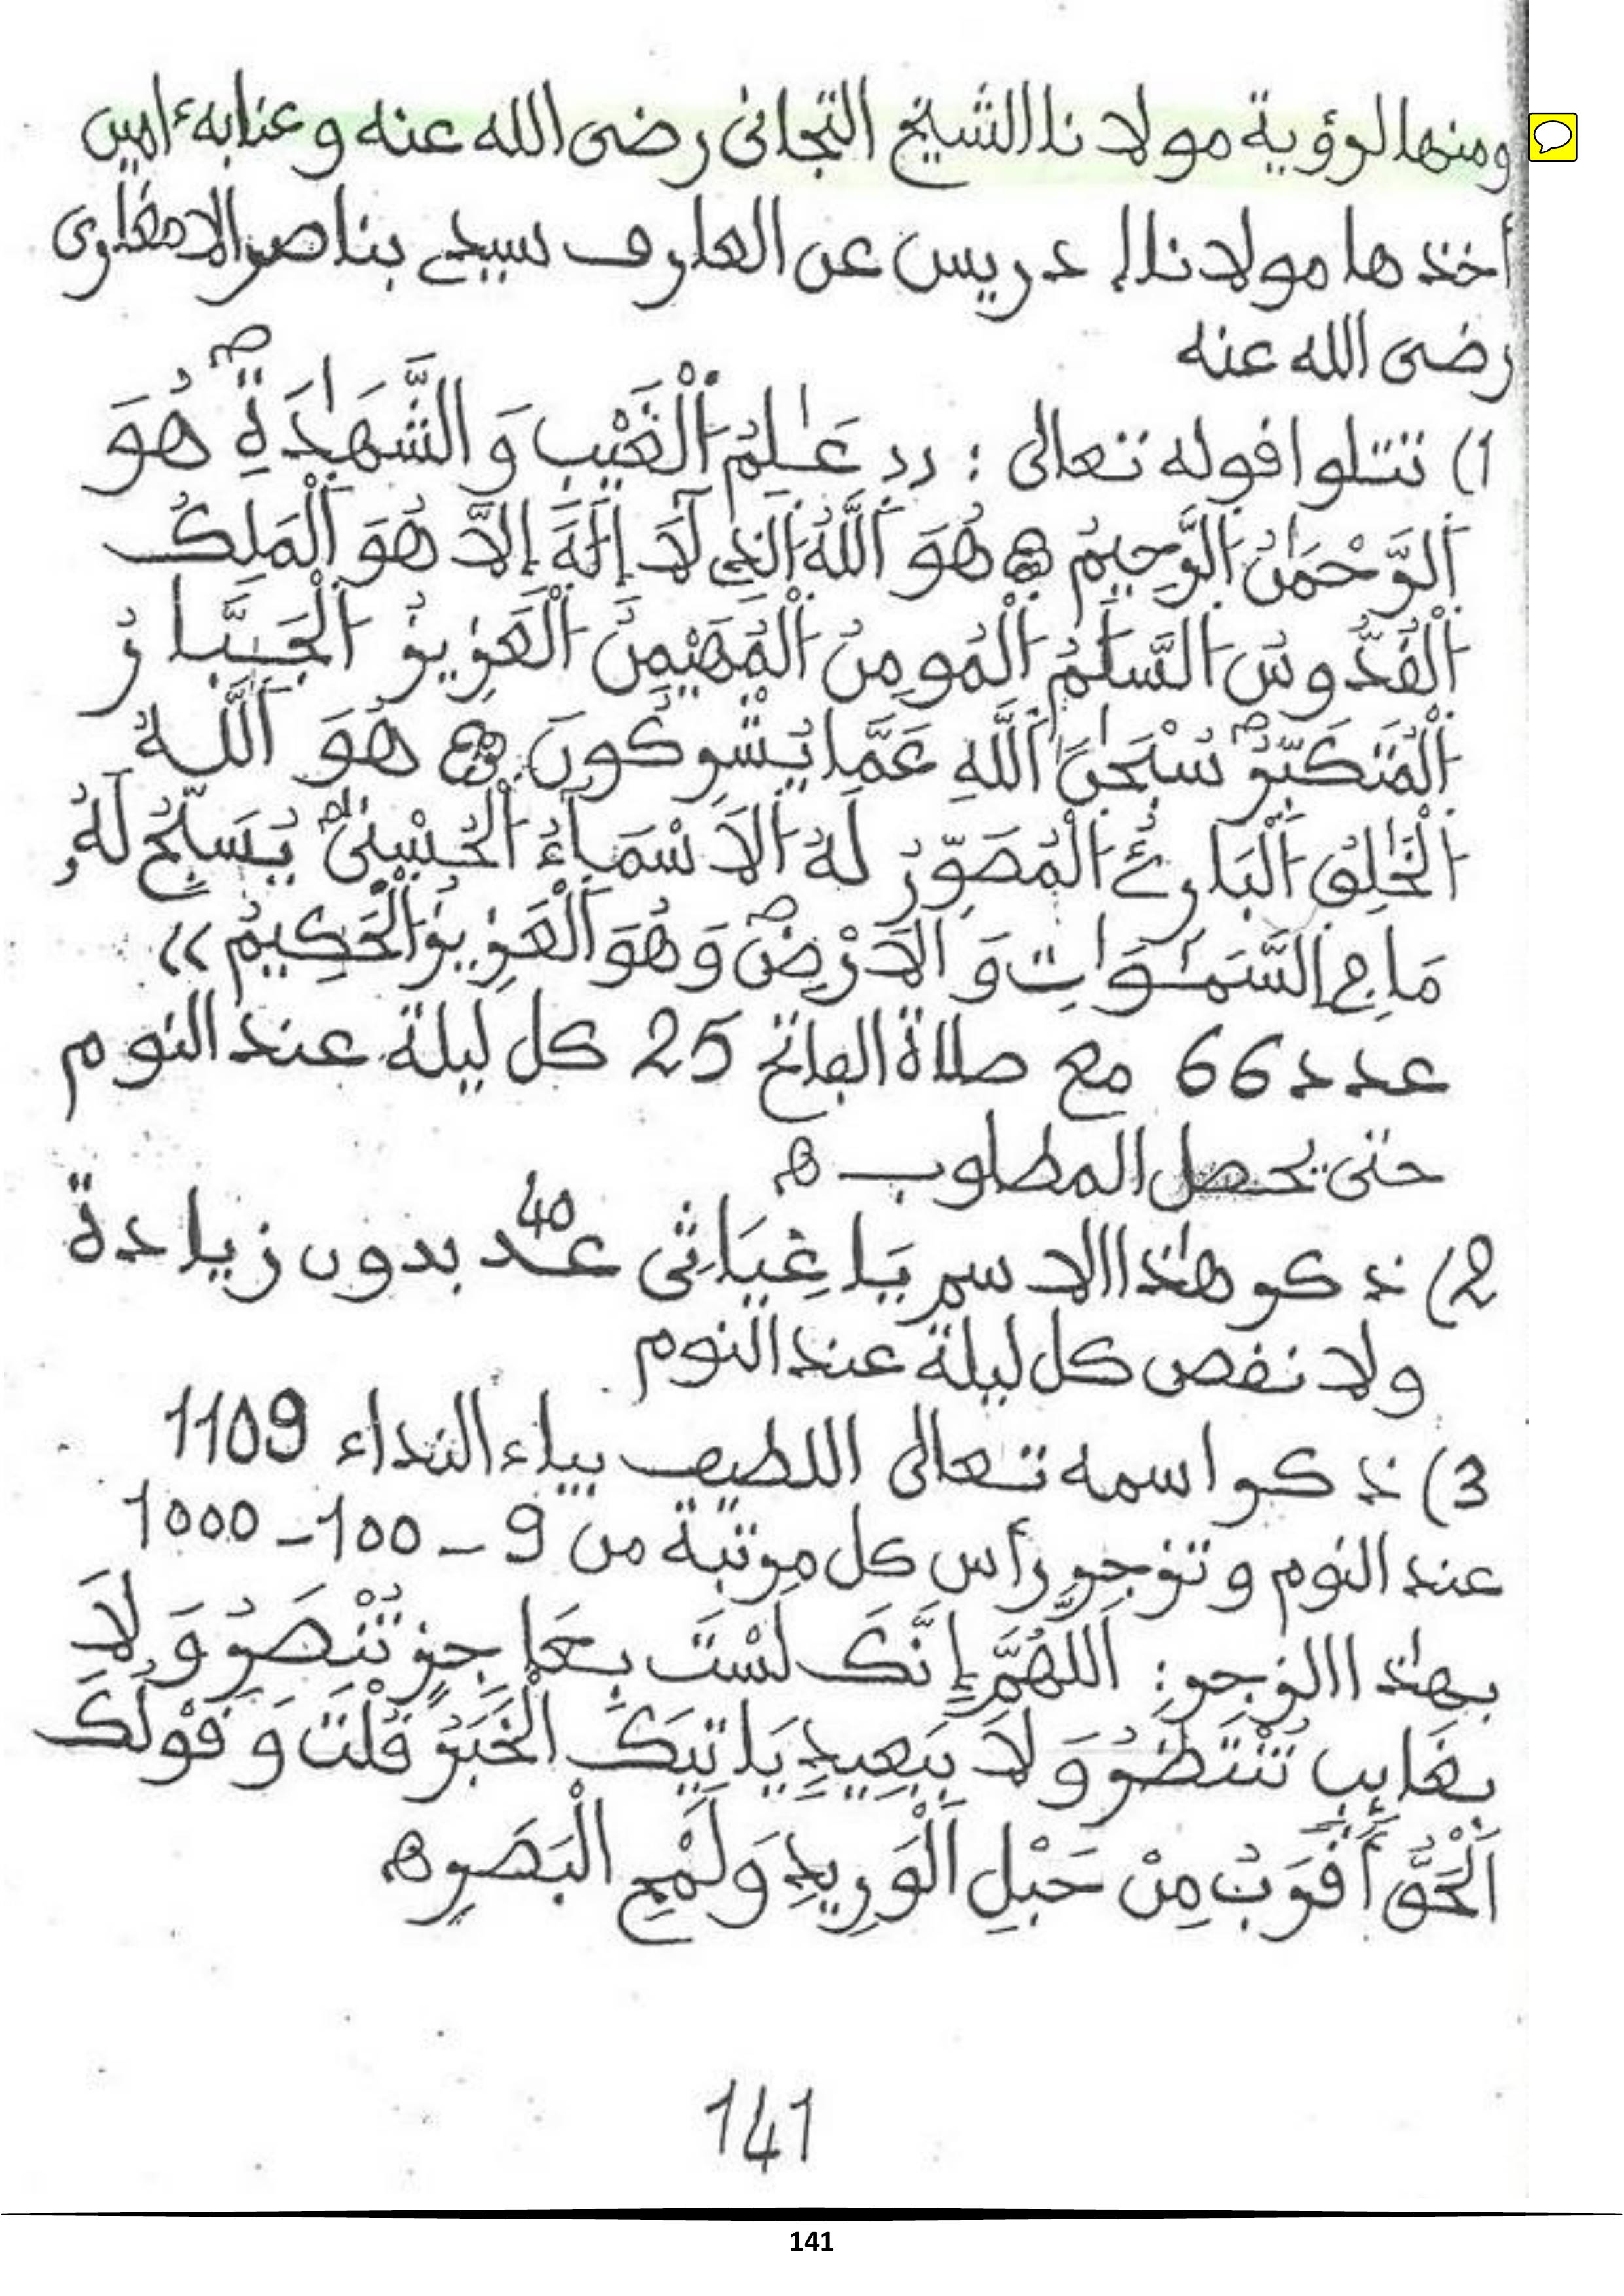 ومنها لرؤية مولانا الشيخ التجاني رضى الله عنه وعنا به ءامين
أخذها مولانا إدريس عن العارف سيدي بناصر الامغاري
رضى الله عنه
1) تتلوا قوله تعالى : (( عَٰلِمُ اُلْغَيْبِ وَالشَّهَٰدَةِ هُوَ
اَلرَّحْمَٰنُ اُلرَّحِيمُ هُوَ اَللَّهُ اُلذِي لَآ إِلَٰهَ إِلاَّ هُوَ اَلْمَلِكُ
اُلْقُدُّوسُ اُلسَّلَٰمُ اُلْمُومِنُ اُلْمُهَيْمِنُ اُلْعَزِيزُ اُلْجَبَّارُ
اُلْمُتَكَبِّرُ سُبْحَٰنَ اَللَّهِ عَمَّا يُشْرِكُونَ هُوَ اَللَّهُ
اُلْخَٰلِقُ اُلْبَارِئُ اُلْمُصَوِّرُ لَهُ اُلَاسْمَآءُ اُلْحُسْنَىٰ يُسَبِّحُ لَهُۥ
مَا فِي اِلسَّمَٰوَٰتِ وَالَارْضِ وَهُوَ اَلْعَزِيزُ اُلْحَكِيمُ ))
عدد 66 مع صلاة الفاتح 25 كل ليلة عند النوم
حتى يحصل المطلوب ه
2) ذكر هٰذا الاسم يَا غِيَاثِى عدد 40 بدون زيادة
ولا نقص كل ليلة عند النوم
3) ذكر اسمه تعالى اللطيف بياء النداء 1109
عند النوم وتزجر رأس كل مرتبة من 9 - 100 - 1000
بهٰذا الزجر: اَللَّهُمَّ إِنَّكَ لَسْتَ بِعَاجِزٍ تُنْصَرُ وَلَا
بِغَايِبٍ تُنْتَظَرُ وَلَا بِبَعِيدٍ يَاتِيكَ الْخَبَرُ قُلْتَ وَقَوْلُكَ
اَلْحَقُّ أَقْرَبُ مِنْ حَبْلِ الْوَرِيدِ وَلَمْحِ الْبَصَرِ ه
141
141